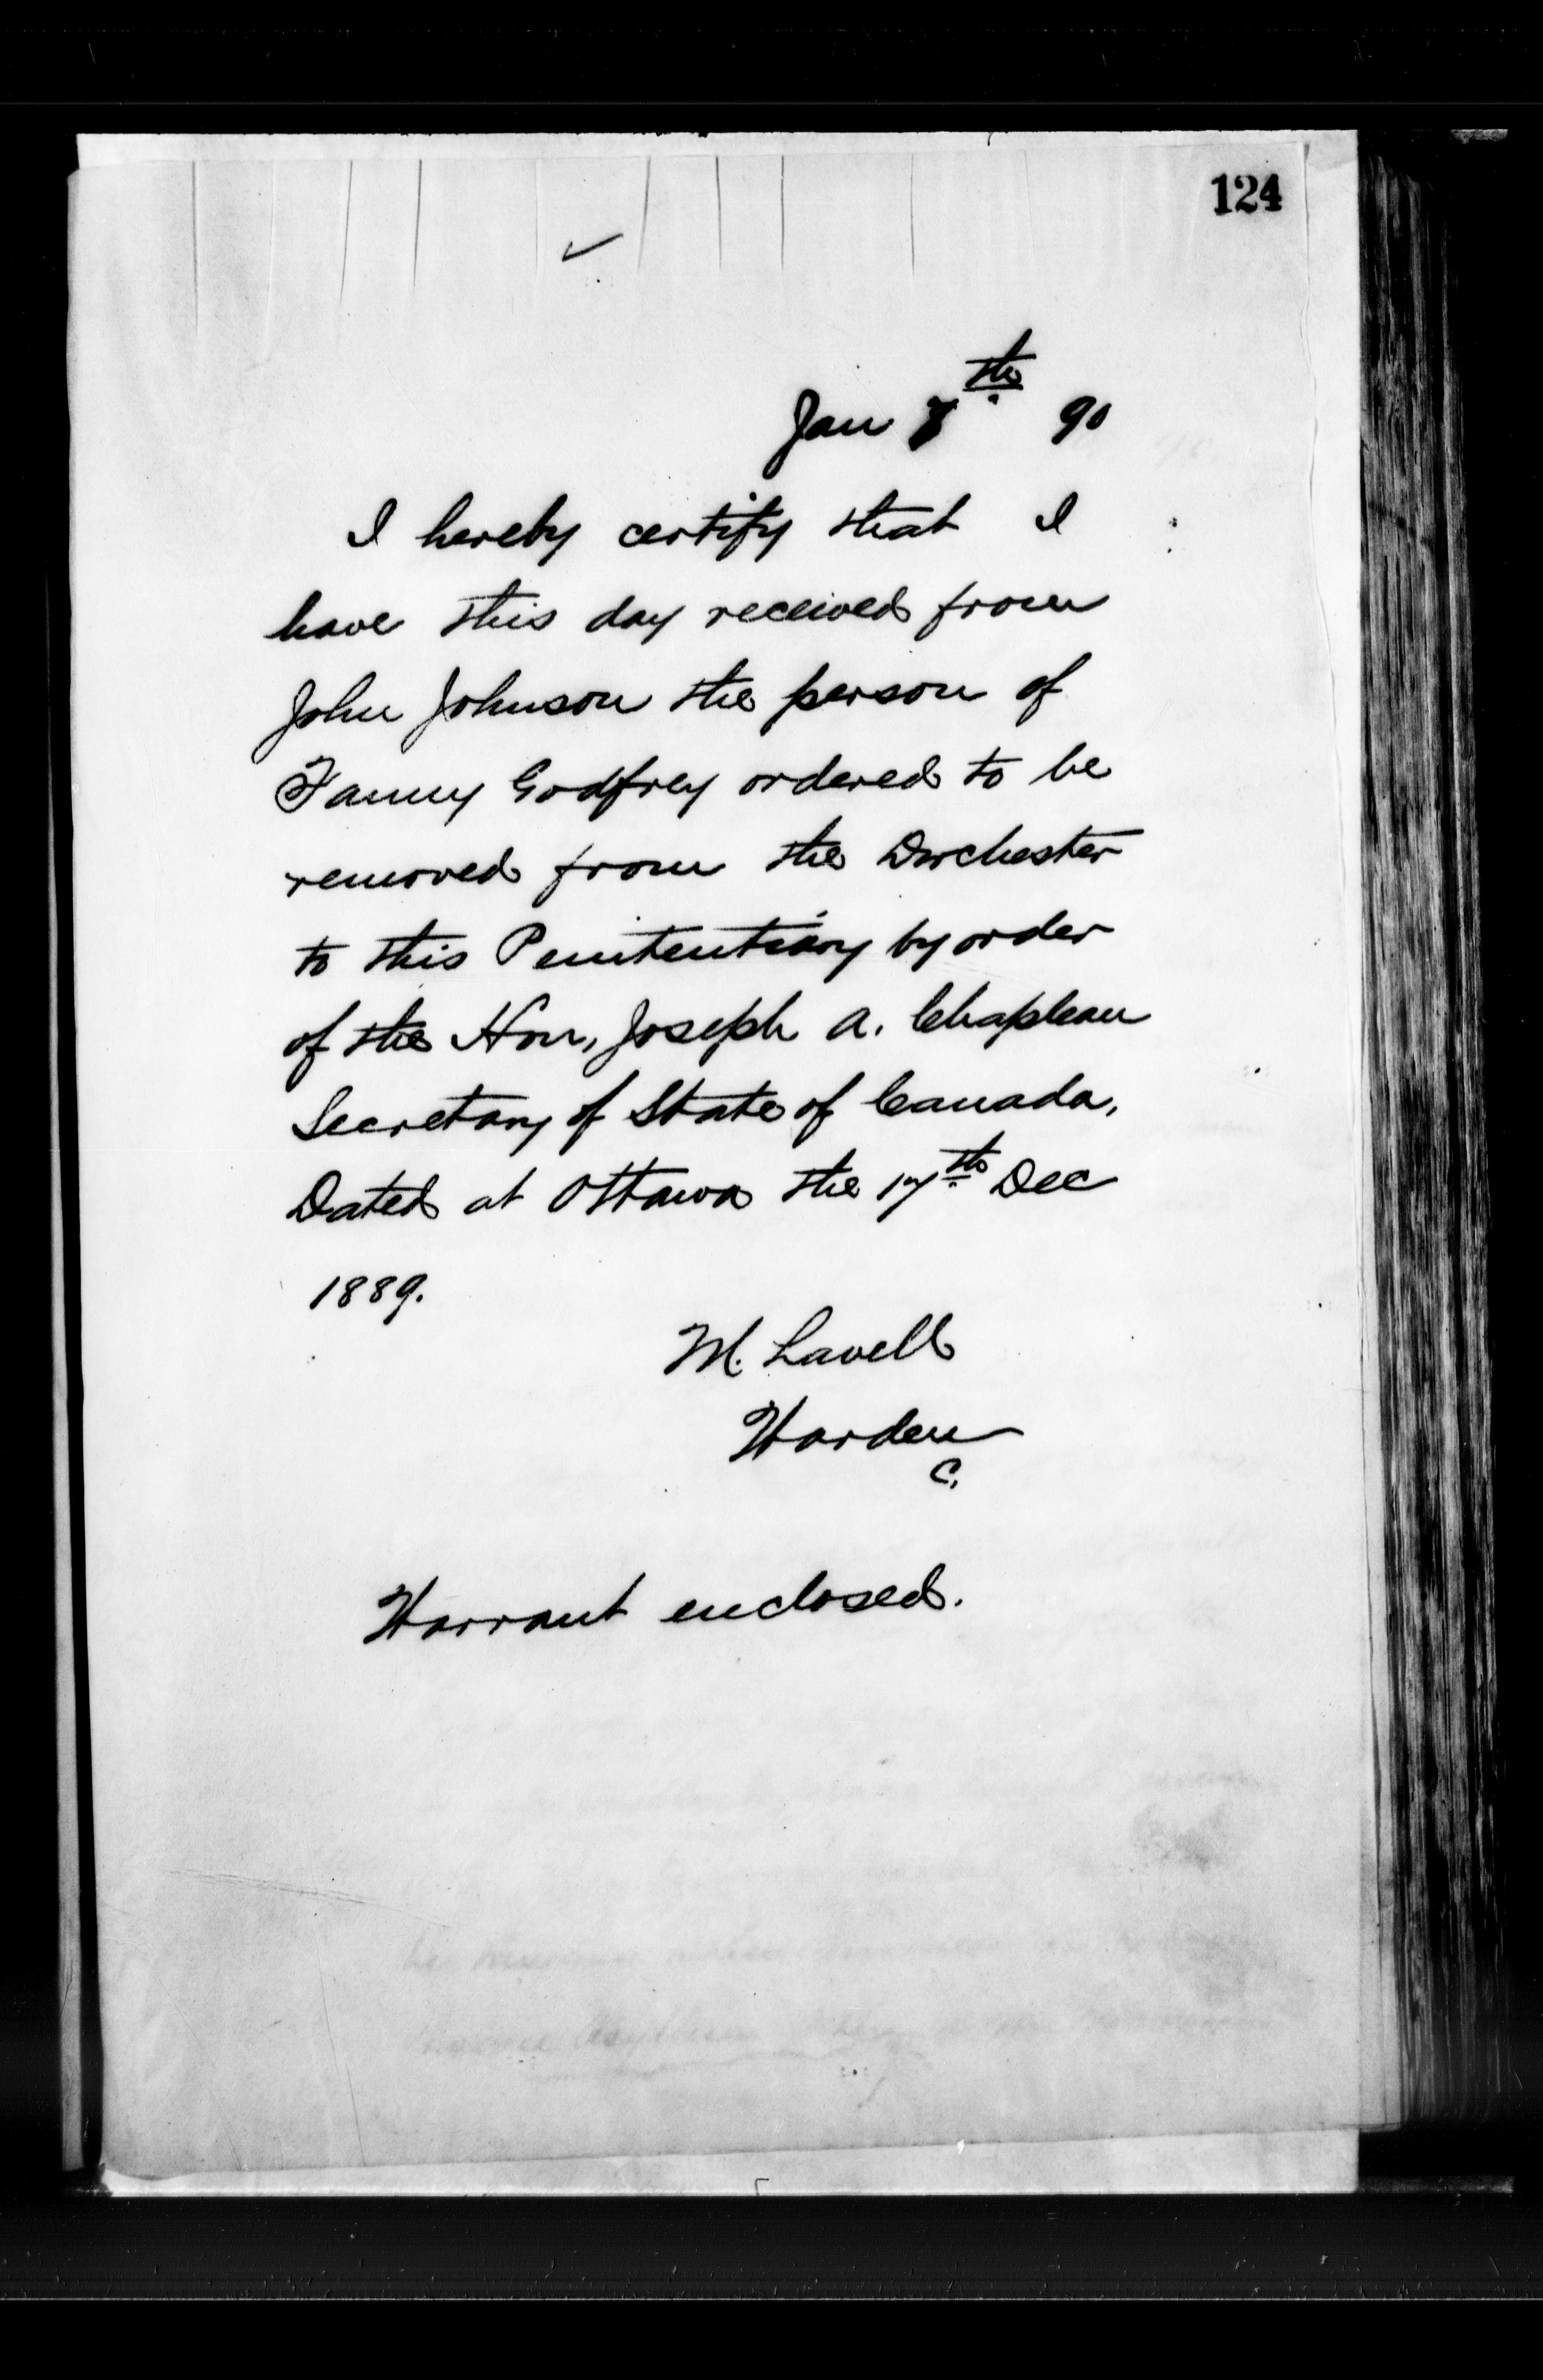 124
Jan 7th 90
I hereby certify that I
have this day received from
John Johnson the person of
Fanny Godfrey ordered to be
removed from the Dorchester
to this Penitentiary by order
of the Hon, Joseph A. Chapleau
Secretary of State of Canada,
Dated at Ottawa the 17th Dec
1889.
M. Lavell
Warden
C.
Warrant enclosed.